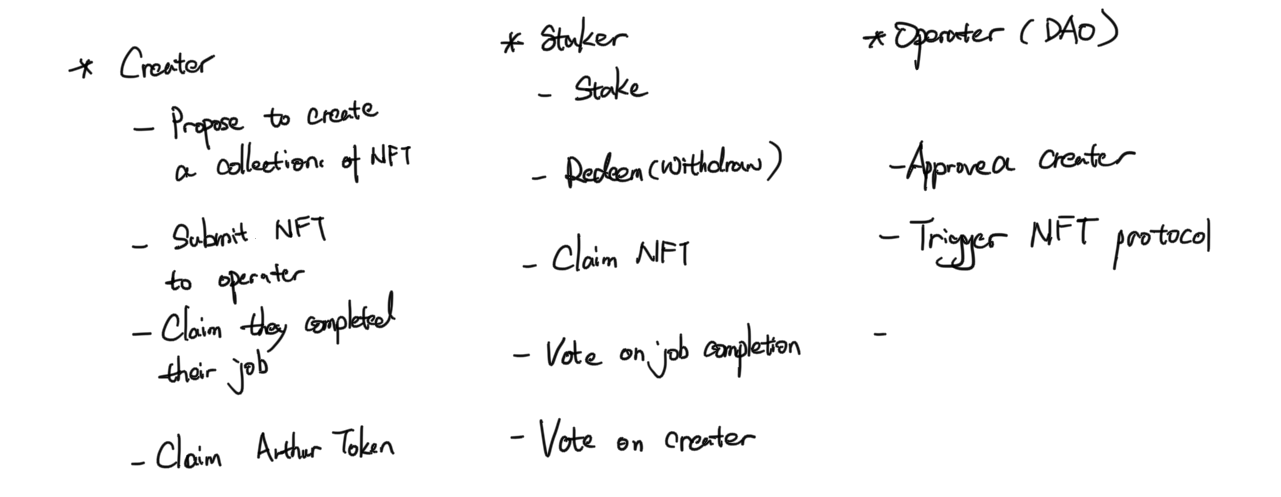 * Creater
- Propose to create
a collection of NFT
- Submit NFT
to operater
- Claim they completed
their job
- Claim Arthur Token
* Staker
- Stake
- Redeem (withdraw)
- Claim NFT
- Vote on job completion
- Vote on creater
* Operater (DAO)
- Approve a creater
- Trigger NFT protocol
-